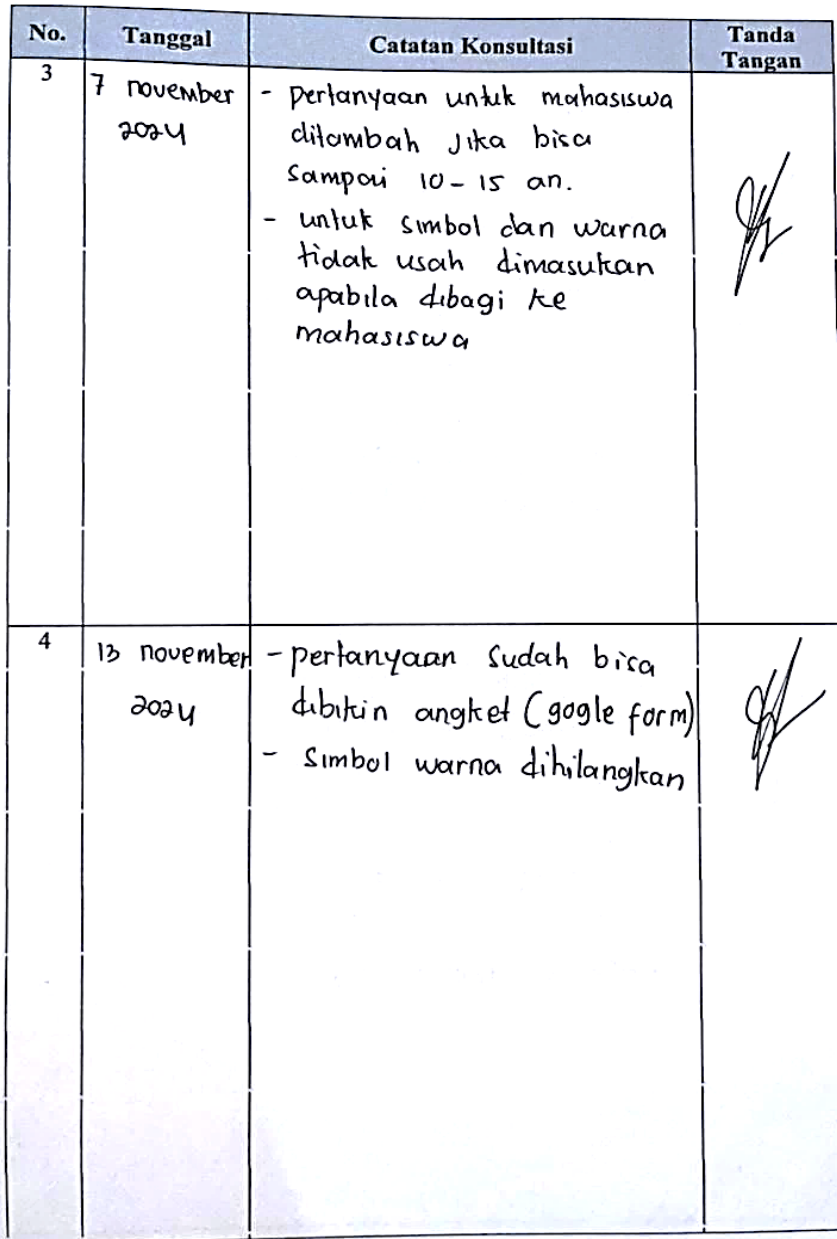 No. Tanggal Catatan Konsultasi Tanda Tangan
3 7 november 2024
- pertanyaan untuk mahasiswa
ditambah Jika bisa
sampai 10 - 15 an.
- untuk simbol dan warna
tidak usah dimasukan
apabila dibagi ke
mahasiswa
4 13 november 2024
- pertanyaan sudah bisa
dibikin angket (gogle form)
- simbol warna dihilangkan